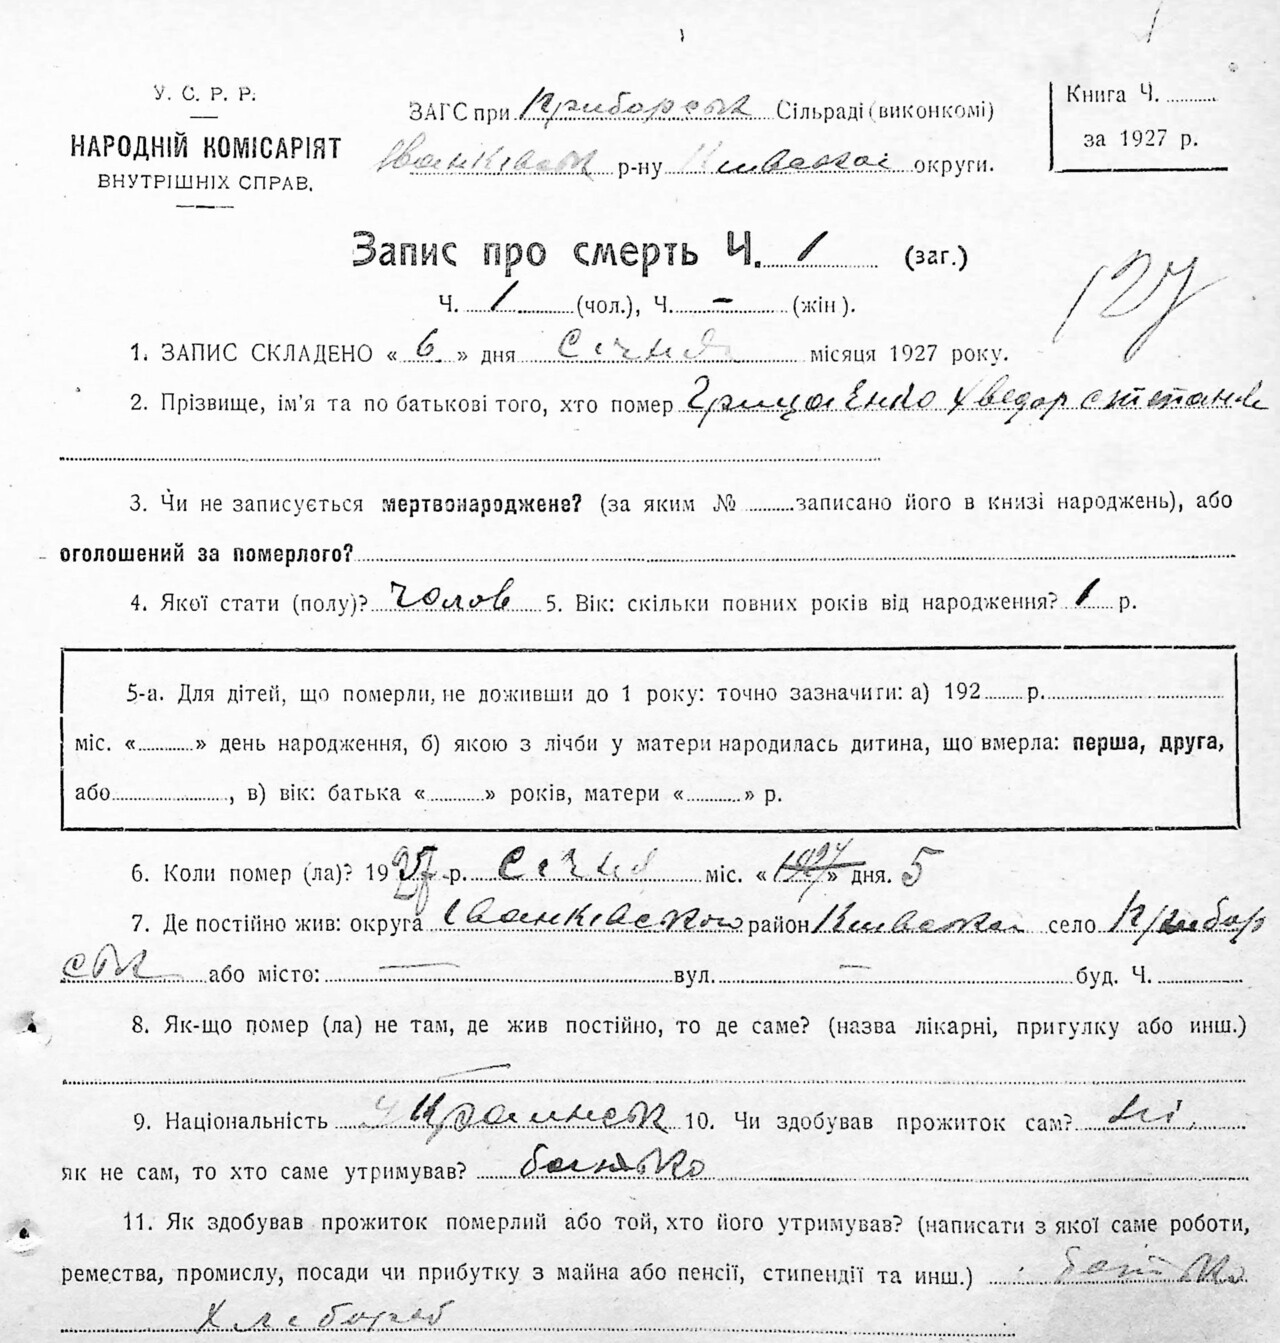 У. С. Р. Р.
НАРОДНІЙ КОМІСАРІЯТ
ВНУТРІШНІХ СПРАВ.
ЗАГС при Приборськ Сільраді (виконкомі)
Іванківськ р-ну Київської округи.
Книга Ч.
за 1927 р.
Запис про смерть Ч. 1 (заг.)
127
Ч. 1 (чол.), Ч. – (жін).
1. ЗАПИС СКЛАДЕНО « 6 » дня Січня місяця 1927 року.
2. Прізвище, ім'я та по батькові того, хто помер Грищенко Хведор степанов
3. Чи не записується мертвонароджене? (за яким № записано його в книзі народжень), або
оголошений за померлого?
4. Якої стати (полу)? чолов 5. Вік: скільки повних років від народження? 1 р.
5-а. Для дітей, що померли, не доживши до 1 року: точно зазначити: а) 192 р.
міс. « » день народження, б) якою з лічби у матери народилась дитина, що вмерла: перша, друга,
або , в) вік: батька « » років, матери « » р.
6. Коли помер (ла)? 1927 р. Січня міс. « » дня. 5
7. Де постійно жив: округа Іванківского район Київської село Прибор
ськ або місто: — вул. — буд. Ч.
8. Як-що помер (ла) не там, де жив постійно, то де саме? (назва лікарні, пригулку або инш.)
9. Національність Українськ 10. Чи здобував прожиток сам? Ні
як не сам, то хто саме утримував? батько
11. Як здобував прожиток померлий або той, хто його утримував? (написати з якої саме роботи,
ремества, промислу, посади чи прибутку з майна або пенсії, стипендії та инш.) батько
Хлебороб